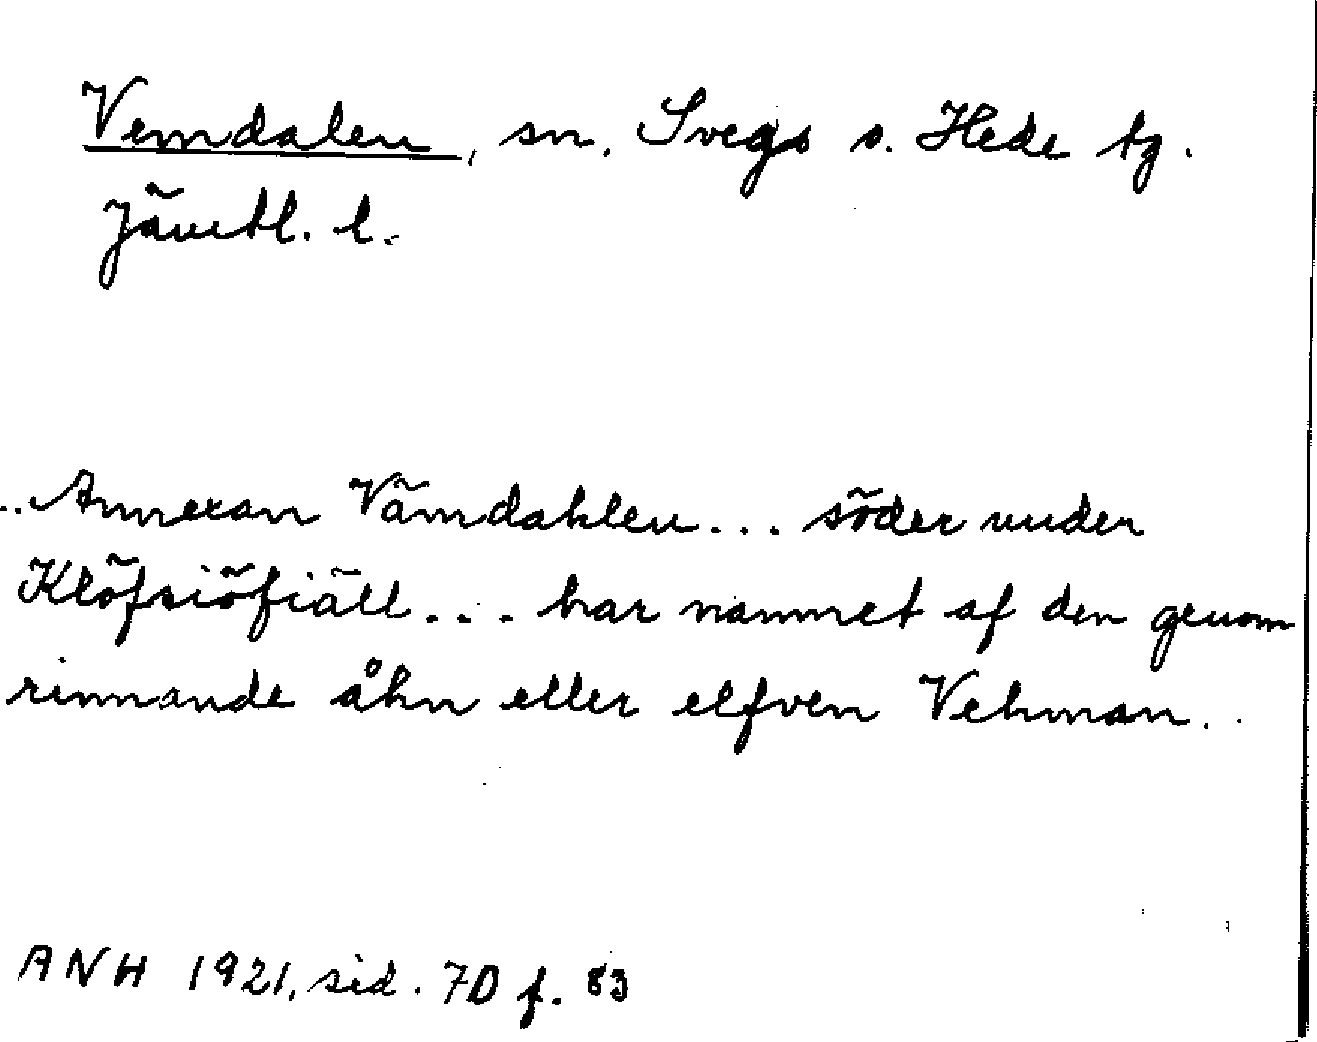 Vemdalen, sn. Svegs o. Hede tg.
Jämtl. l.
.. Annexan Vämdahlen... söder under
Klöfsiöfiäll... har namnet af den genom
rinnande åhn eller elfven Vehman..
ANH 1921, sid. 70 f. 83